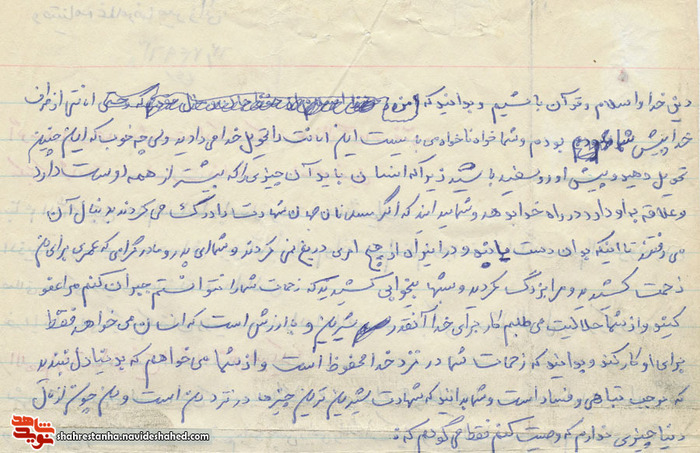 دین خدا و اسلام و قرآن باشیم و بدانید که امانتی از طرف
خدا پیش شما بودم و شما خواه ناخواه می بایست این امانت را تحویل خدا می دادید ولی چه خوب که این چنین
تحویل دهید و پیش او رو سفید باشید زیرا که انسان باید آن چیزی را که بیشتر از همه دوست دارد
و علاقه به او دارد در راه خدا بدهد و شما بدانید که اگر انسانان شهادت را درک می کردند بدنبال آن
می رفتند تا اینکه به آن دست یابند و در این راه از هیچ امری دریغ نمی کردند و شما ای پدر و مادر گرامی که عمری برای من
زحمت کشیدید و مرا بزرگ کردید و شبها بیخوابی کشیدید که زحمات شما را نتوانستم جبران کنم مرا عفو
کنید و از شما حلالیت می طلبم کار برای خدا آنقدر شیرین و با ارزش است که انسان می خواهد فقط
برای او کار کند و بدانید که زحمات شما در نزد خدا محفوظ است و از شما می خواهم که به دنبال نبندید
که موجب تباهی و فساد است و شما بدانید که شهادت شیرین ترین چیزها در نزد من است و من چون از مال
دنیا چیزی ندارم که وصیت کنم فقط می گویم که:
نوید شاهد
shahrestanha.navideshahed.com